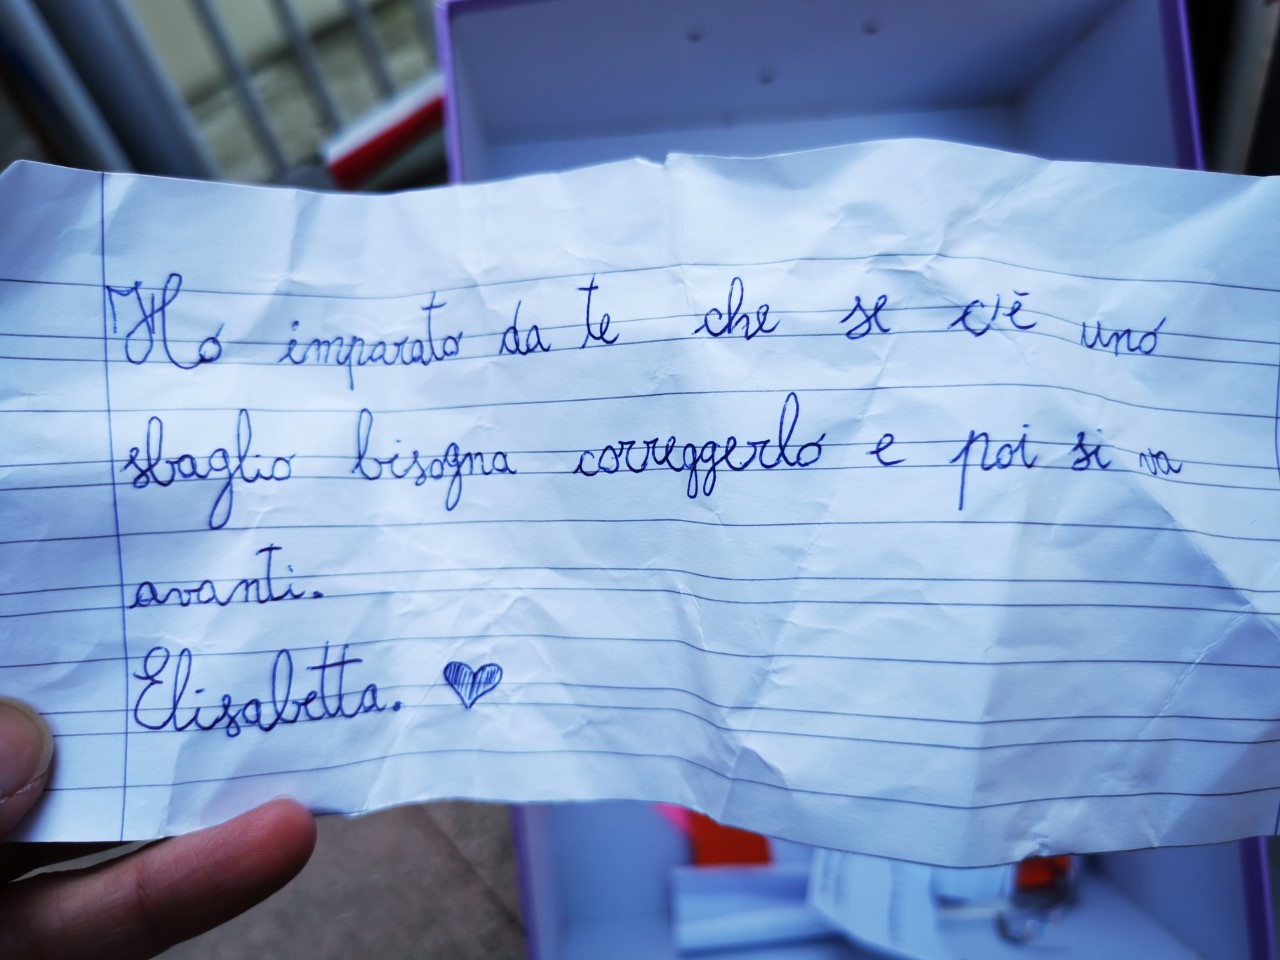 Ho imparato da te che se c'è uno
sbaglio bisogna correggerlo e poi si va
avanti.
Elisabetta. ♥